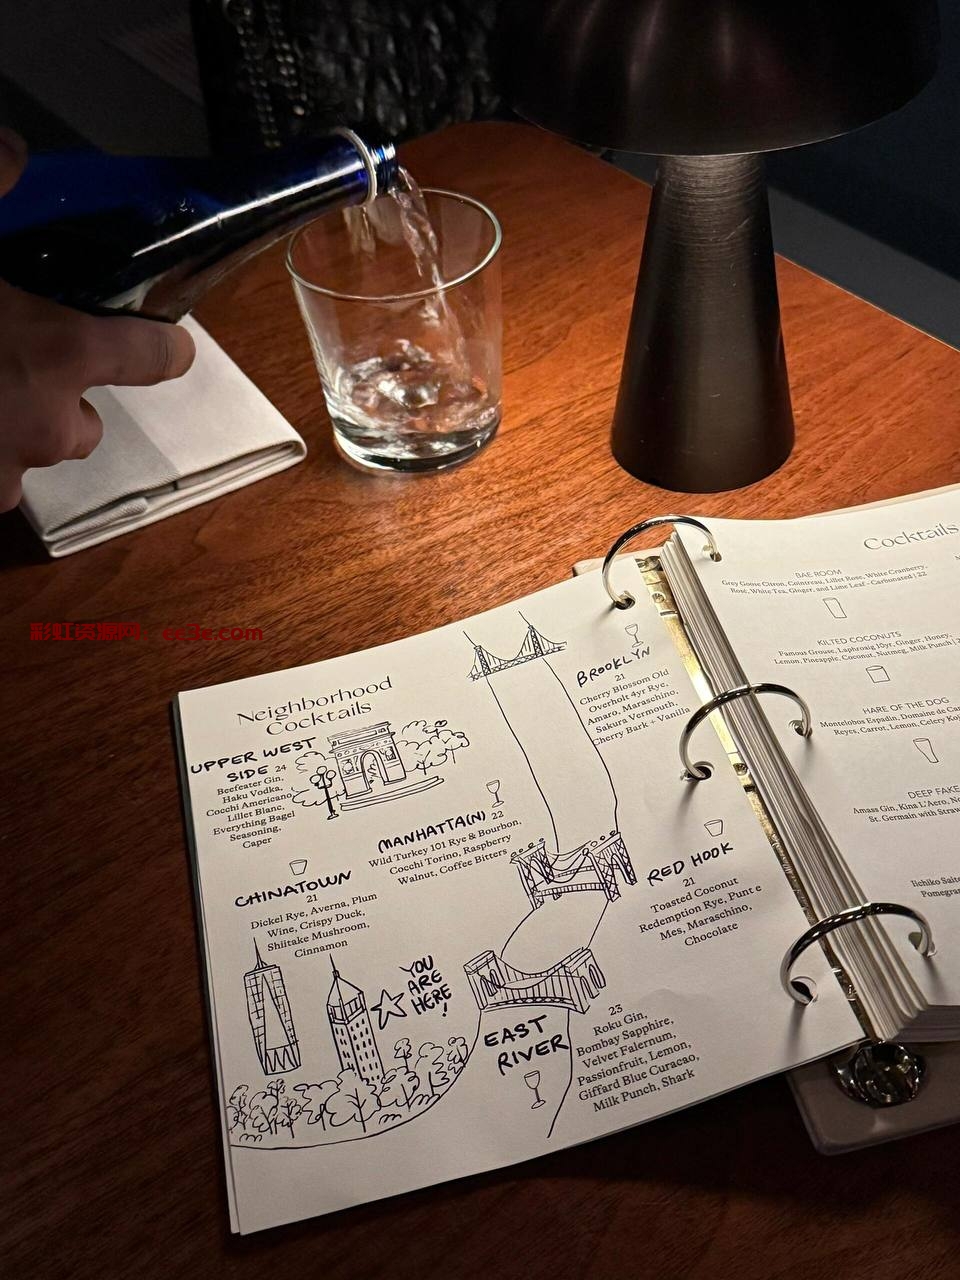 Neighborhood
Cocktails
UPPER WEST
SIDE 24
Beefeater Gin,
Haku Vodka,
Cocchi Americano,
Lillet Blanc,
Everything Bagel
Seasoning,
Caper
MANHATTA(N) 22
Wild Turkey 101 Rye & Bourbon,
Cocchi Torino, Raspberry
Walnut, Coffee Bitters
CHINATOWN
21
Dickel Rye, Averna, Plum
Wine, Crispy Duck,
Shiitake Mushroom,
Cinnamon
YOU
ARE
HERE!
BROOKLYN
21
Cherry Blossom Old
Overholt 4yr Rye,
Amaro, Maraschino,
Sakura Vermouth,
Cherry Bark + Vanilla
RED HOOK
21
Toasted Coconut
Redemption Rye, Punt e
Mes, Maraschino,
Chocolate
EAST
RIVER
23
Roku Gin,
Bombay Sapphire,
Velvet Falernum,
Passionfruit, Lemon,
Giffard Blue Curacao,
Milk Punch, Shark
Cocktails
BAE ROOM
Grey Goose Citron, Cointreau, Lillet Rose, White Cranberry,
Rosé, White Tea, Ginger, and Lime Leaf - Carbonated | 22
KILTED COCONUTS
Famous Grouse, Laphroaig 10yr, Ginger, Honey,
Lemon, Pineapple, Coconut, Nutmeg, Milk Punch |
HARE OF THE DOG
Montelobos Espadin, Domaine de
Reyes, Carrot, Lemon, Celery
DEEP FAKE
Amass Gin, Kina L'Aero,
St. Germain with
Iichiko
彩虹资源网，ee3e.com